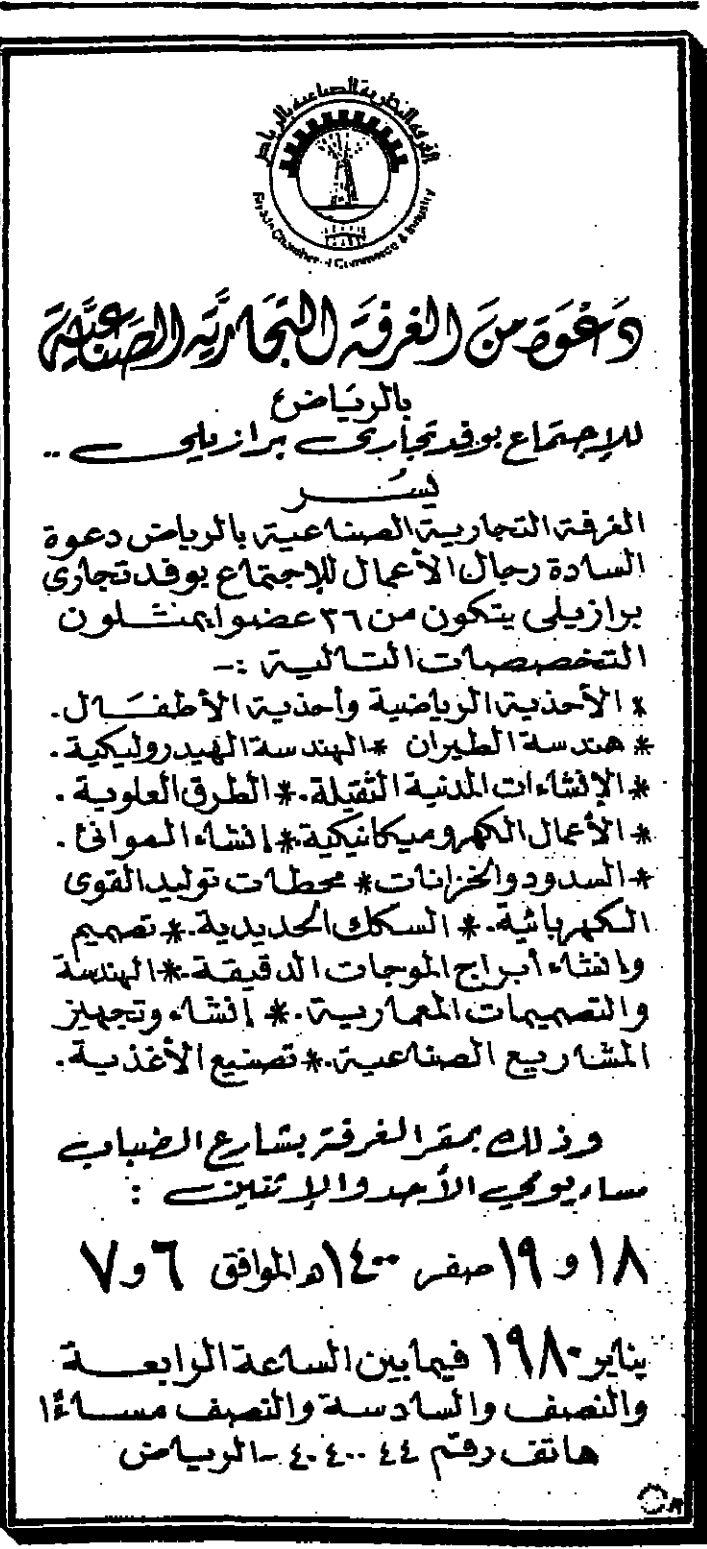 الغرفة التجارية الصناعية بالرياض
Riyadh Chamber of Commerce & Industry
دَعْوَة منَ الغرفَة التجَاريَّة الصناعيَّة
بالريَاض
للإجتماع بوفد تجاري برازيلي ..
يسَـر
الغرفة التجارية الصناعية بالرياض دعوة
السادة رجال الأعمال للإجتماع بوفد تجارى
برازيلى يتكون من ٣٦ عضوا يمثلون
التخصصات التالية :-
* الأحذية الرياضية وأحذية الأطفال.
* هندسة الطيران * الهندسة الهيدروليكية.
* الإنشاءات المدنية الثقيلة. * الطرق العلوية.
* الأعمال الكهروميكانيكية. * إنشاء الموانئ.
* السدود والخزانات * محطات توليد القوى
الكهربائية. * السكك الحديدية. * تصميم
وإنشاء أبراج الموجات الدقيقة. * الهندسة
والتصميمات المعمارية. * إنشاء وتجهيز
المشاريع الصناعية. * تصنيع الأغذية.
وذلك بمقر الغرفة بشارع الضباب
مساء يومي الأحد والإثنين :
١٨ و ١٩ صفر ١٤٠٠هـ الموافق ٦ و ٧
يناير ١٩٨٠ فيما بين الساعة الرابعة
والنصف والسادسة والنصف مساءًا
هاتف رقم ٤٤ ٤٠٤٠٠ - الرياض